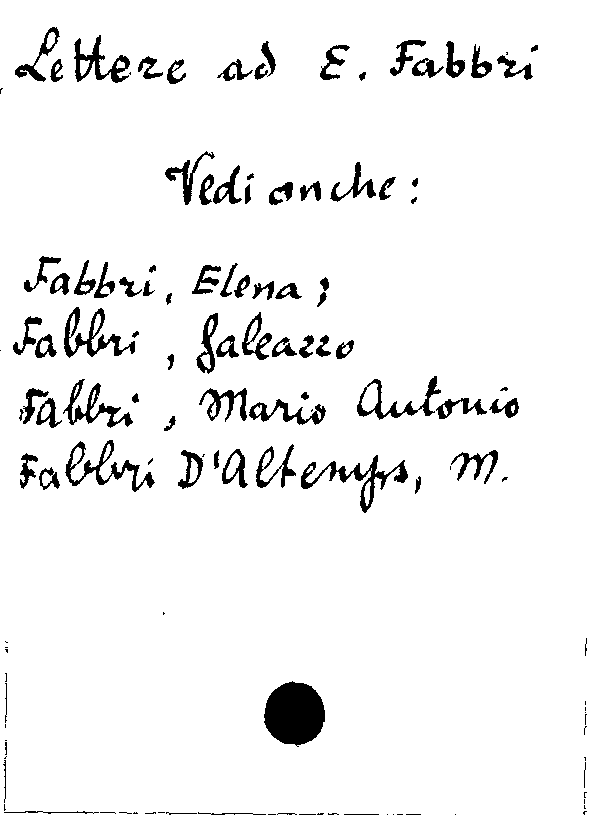 Lettere ad E. Fabbri
Vedi anche:
Fabbri, Elena;
Fabbri, Galeazzo
Fabbri, Mario Antonio
Fabbri D'Altemps, M.